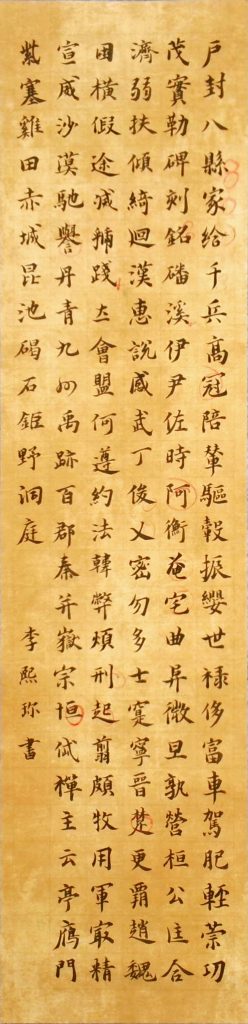 戶封八縣家給千兵高冠陪輦驅轂振纓世祿侈富車駕肥輕策功
茂實勒碑刻銘磻溪伊尹佐時阿衡奄宅曲阜微旦孰營桓公匡合
濟弱扶傾綺迴漢惠說感武丁俊乂密勿多士寔寧晉楚更霸趙魏
困橫假途滅虢踐土會盟何遵約法韓弊煩刑起翦頗牧用軍最精
宣威沙漠馳譽丹青九州禹跡百郡秦并嶽宗恒岱禪主云亭鴈門
紫塞雞田赤城昆池碣石鉅野洞庭 李熙珎書